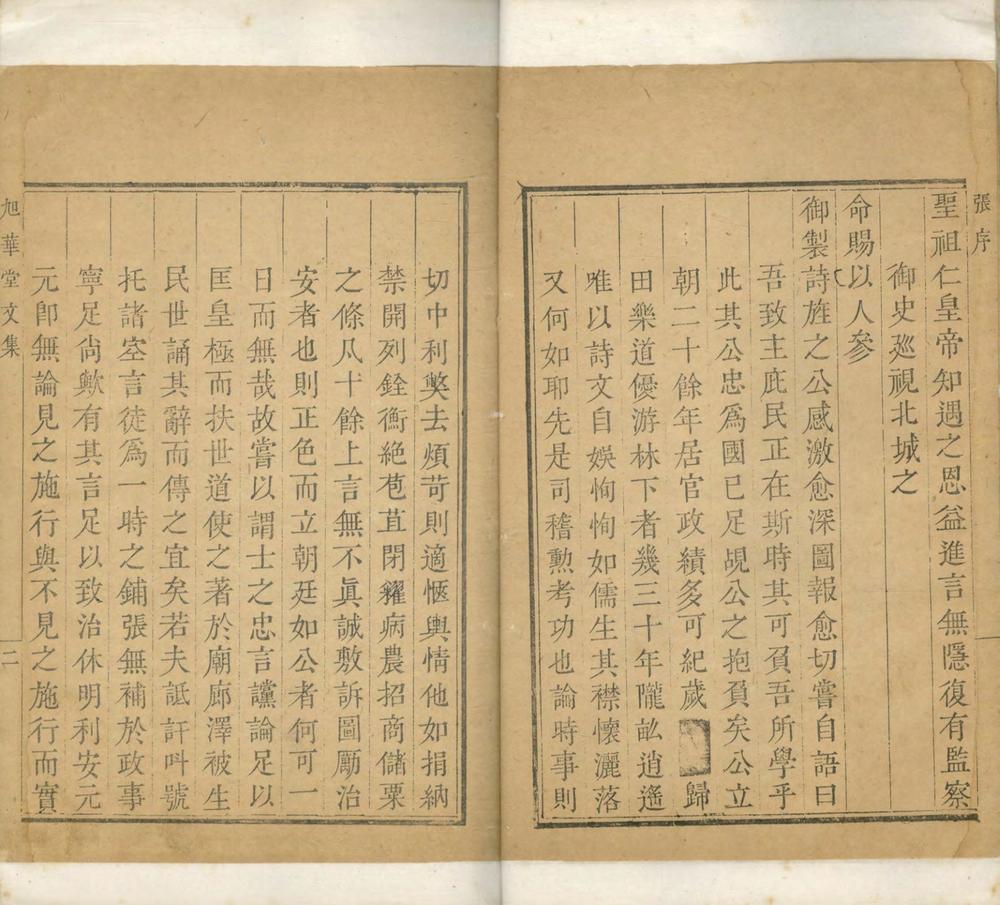 張序
聖祖仁皇帝知遇之恩益進言無隱復有監察
御史廵視北城之
命賜以人參
御製詩旌之公感激愈深圖報愈切嘗自語曰
吾致主庇民正在斯時其可負吾所學乎
此其公忠爲國已足覘公之抱負矣公立
朝二十餘年居官政績多可紀歲歸
田樂道優游林下者幾三十年隴畝逍遙
唯以詩文自娛恂恂如儒生其襟懷灑落
又何如耶先是司稽勲考功也論時事則
切中利獘去煩苛則適愜輿情他如捐納
禁開列銓衡絶苞苴閉糴病農招商儲粟
之條凡十餘上言無不眞誠敷訴圖勵治
安者也則正色而立朝廷如公者何可一
日而無哉故嘗以謂士之忠言讜論足以
匡皇極而扶世道使之著於廟廊澤被生
民世誦其辭而傳之宜矣若夫詆訐呌號
托諸空言徒爲一時之鋪張無補於政事
寧足尙歟有其言足以致治休明利安元
元卽無論見之施行與不見之施行而實
旭華堂文集
二